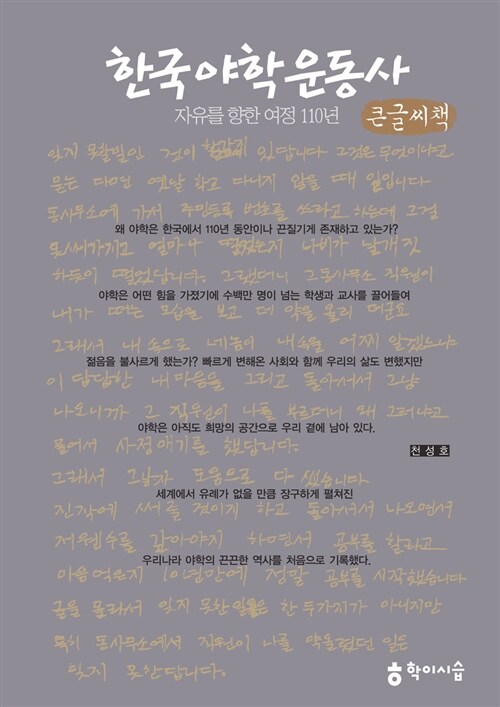 한국야학운동사
자유를 향한 여정 110년
큰글씨책
잊지 못할일인 것이 한가지 있답니다 그것은 무엇이냐면
묻는 다면 옛날 학교 다니지 않을 때 일입니다
동사무소에 가서 주민등록 번호를 쓰라고 하는데 그걸
왜 야학은 한국에서 110년 동안이나 끈질기게 존재하고 있는가?
못써가지고 얼마나 떨었는지 나비가 날개짓
하듯이 떨었답니다. 그랬더니 그 동사무소 직원이
야학은 어떤 힘을 가졌기에 수백만 명이 넘는 학생과 교사를 끌어들여
내가 떠는 모습을 보고 더 약을 올리 더군요
그래서 내 속으로 네놈이 내 속을 어찌 알겠느냐
젊음을 불사르게 했는가? 빠르게 변해온 사회와 함께 우리의 삶도 변했지만
이 답답한 내 마음을 그리고 돌아서서 그냥
나오니까 그 직원이 나를 부르더니 왜 그러냐고
야학은 아직도 희망의 공간으로 우리 곁에 남아 있다.
물어서 사정얘기를 했답니다.
천성호
그래서 그날자 도움으로 다 썼습니다
세계에서 유례가 없을 만큼 장구하게 펼쳐진
진작에 써 줄 것이지 하고 돌아서서 나오면서
저 웬수를 갚아야지 하면서 공부를 할라고
우리나라 야학의 끈끈한 역사를 처음으로 기록했다.
마음먹은지 10년만에 정말 공부를 시작했습니다
글을 몰라서 잊지 못한 일들은 한 두가지가 아니지만
특히 동사무소에서 직원이 나를 약올렸던 일은
잊지 못한답니다.
학이시습